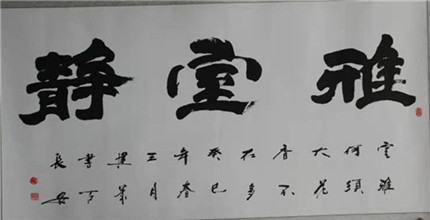 雅室静
室雅何須大花香不在多癸巳年春三月書于長安